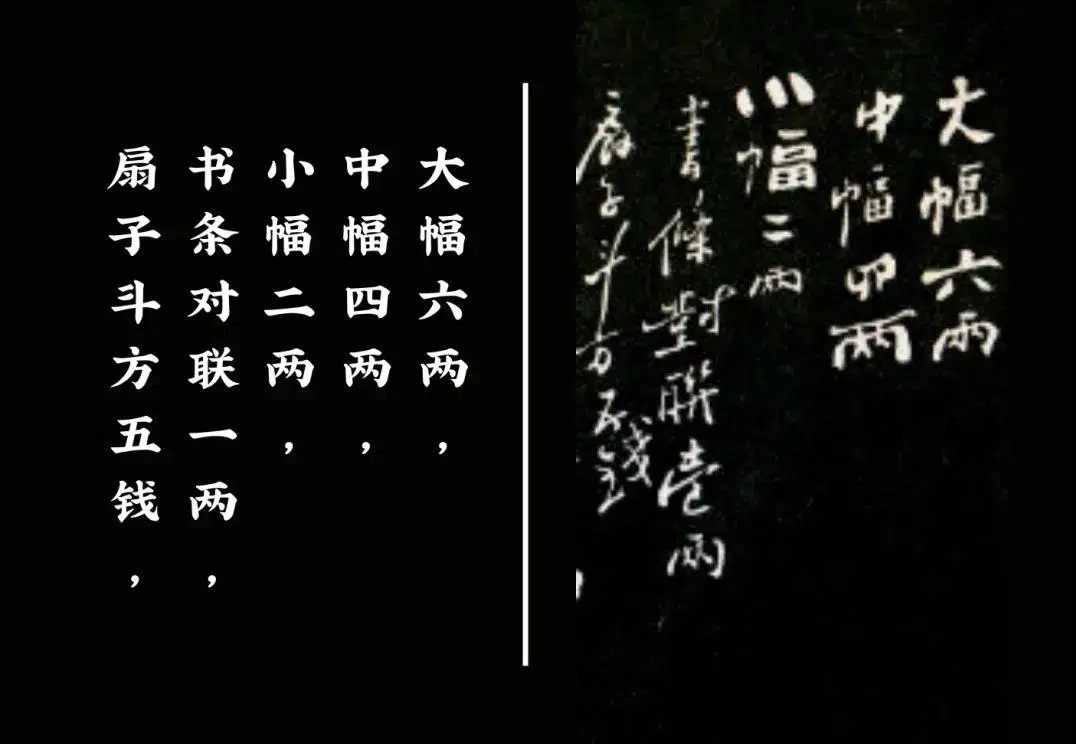 大幅六两，
中幅四两，
小幅二两，
书条对联一两，
扇子斗方五钱，
大幅六兩
中幅四兩
小幅二兩
書條對聯壹兩
扇子斗方五錢